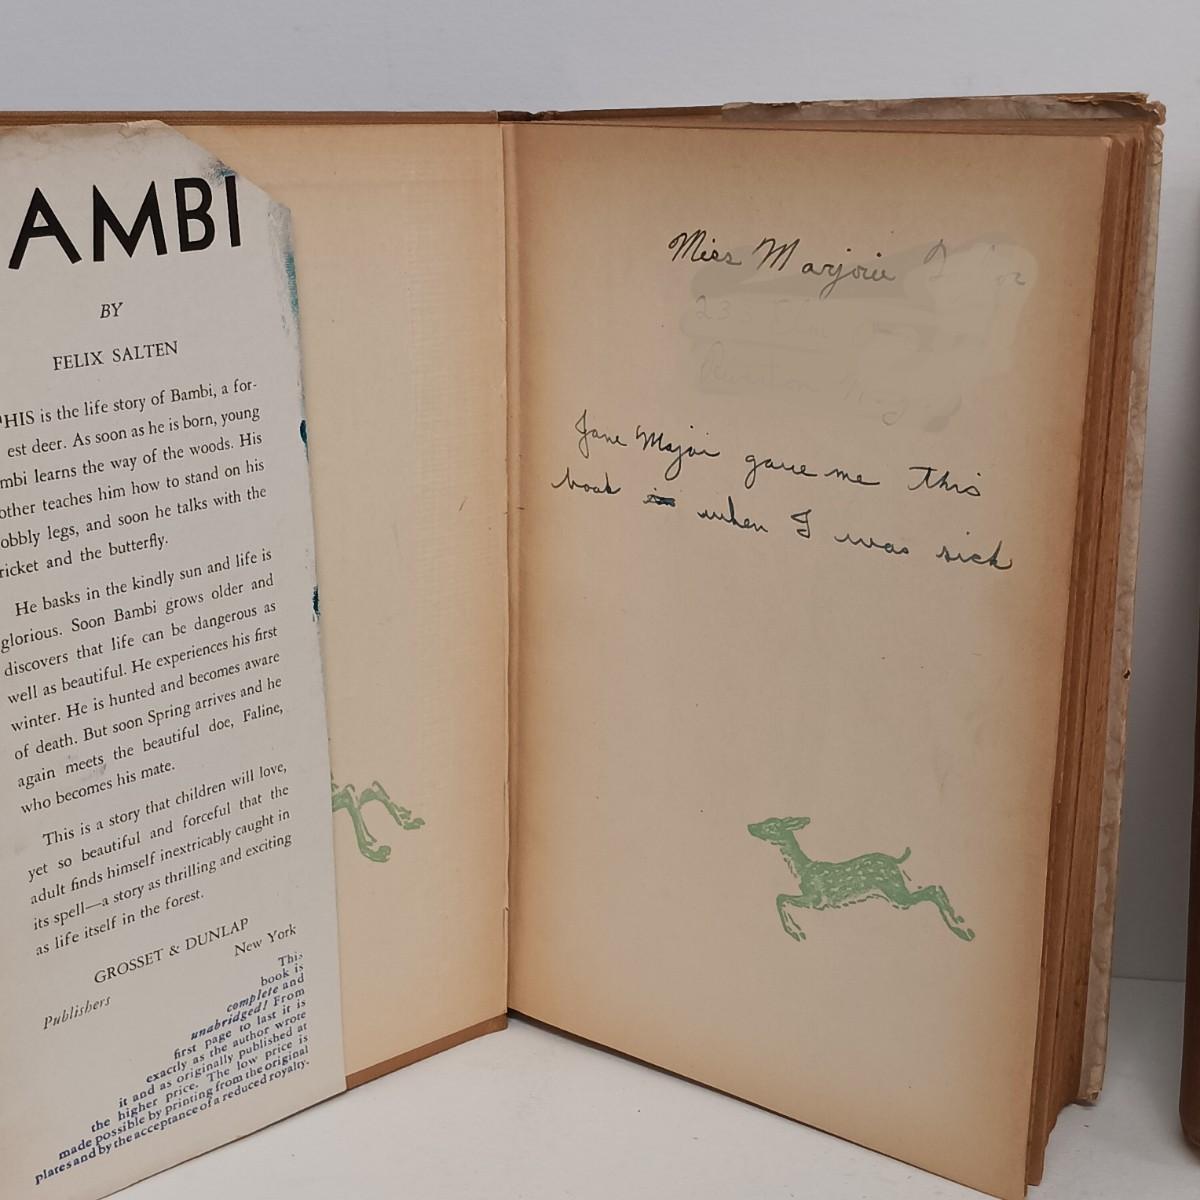 AMBI
BY
FELIX SALTEN
HIS is the life story of Bambi, a for-
est deer. As soon as he is born, young
mbi learns the way of the woods. His
other teaches him how to stand on his
obbly legs, and soon he talks with the
ricket and the butterfly.
He basks in the kindly sun and life is
glorious. Soon Bambi grows older and
discovers that life can be dangerous as
well as beautiful. He experiences his first
winter. He is hunted and becomes aware
of death. But soon Spring arrives and he
again meets the beautiful doe, Faline,
who becomes his mate.
This is a story that children will love,
yet so beautiful and forceful that the
adult finds himself inextricably caught in
its spell—a story as thrilling and exciting
as life itself in the forest.
GROSSET & DUNLAP
Publishers New York
This
book is
complete and
unabridged! From
first page to last it is
exactly as the author wrote
it and as originally published at
the higher price. The low price is
made possible by printing from the original
plates and by the acceptance of a reduced royalty.
Miss Marjorie
Jane Major gave me this
book when I was sick